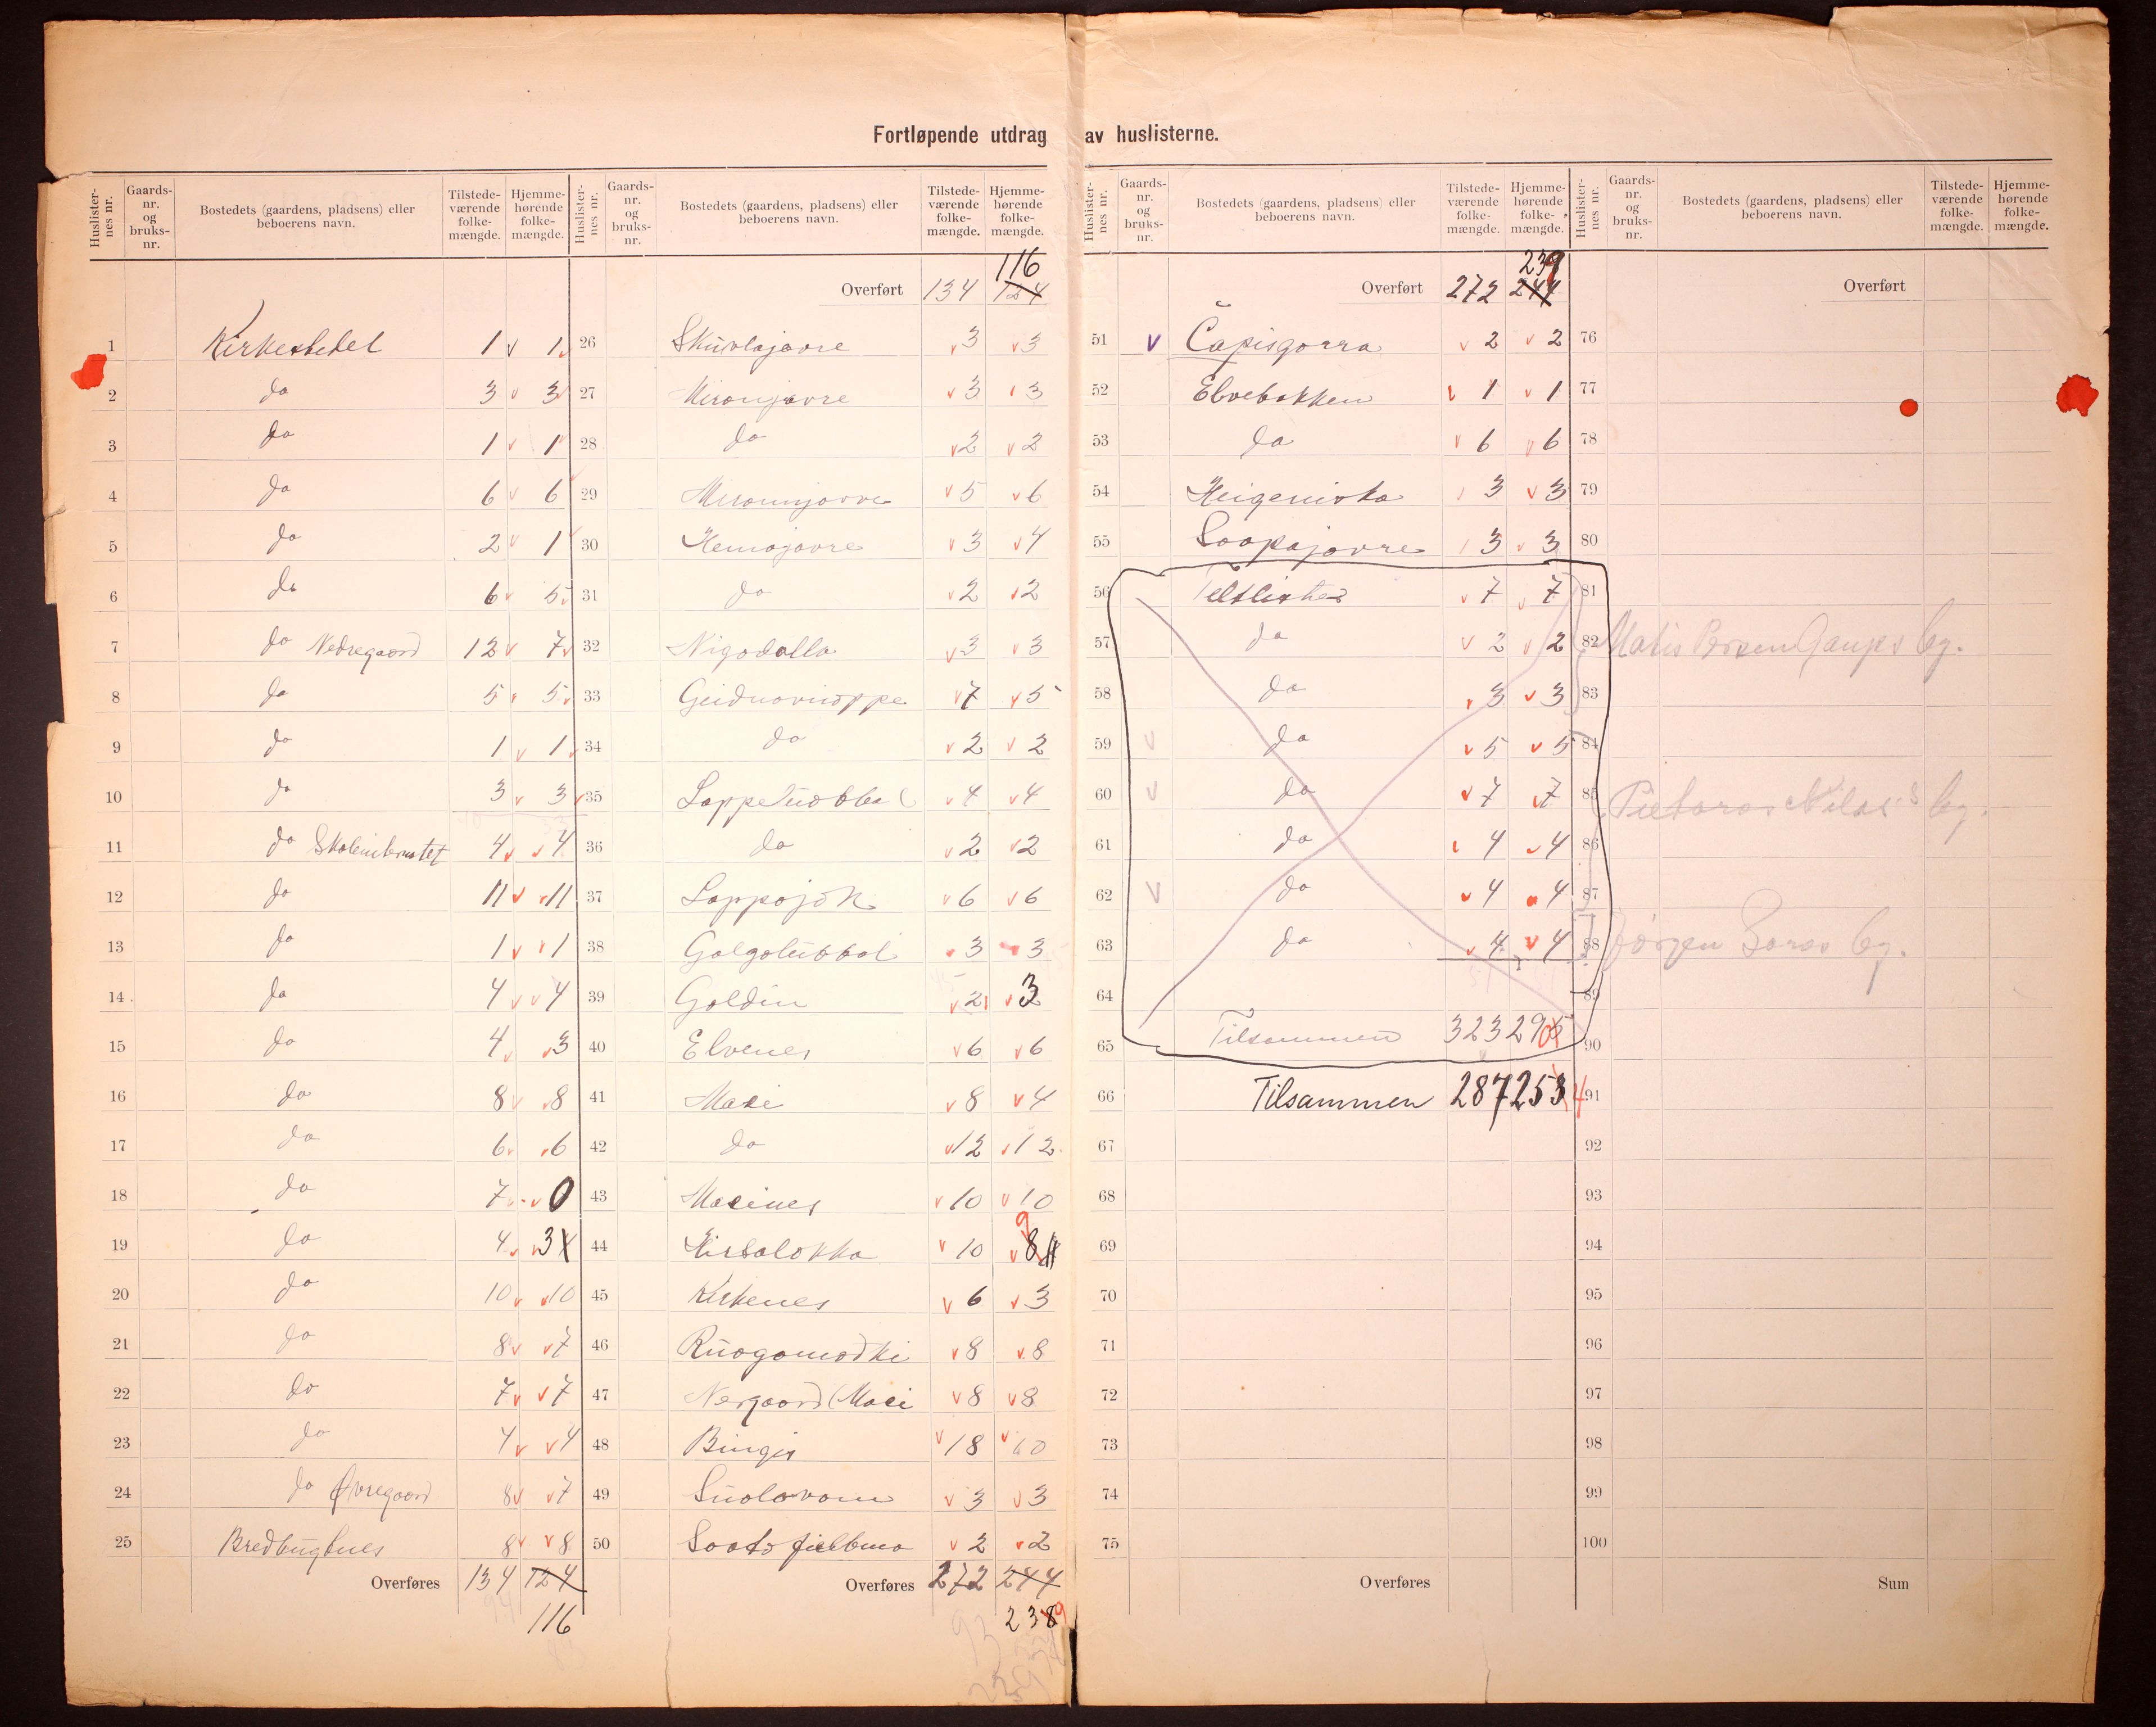 Fortløpende utdrag av huslisterne.
Huslisternes nr. | Gaardsnr. og bruksnr. | Bostedets (gaardens, pladsens) eller beboerens navn. | Tilstedeværende folkemængde. | Hjemmehørende folkemængde.
1 Kirkestedet 1 1
2 do 3 3
3 do 1 1
4 do 6 6
5 do 2 1
6 do 6 5
7 do Nedregaard 12 7
8 do 5 5
9 do 1 1
10 do 3 3
11 do 4 4
12 do 11 11
13 do 1 1
14 do 4 4
15 do 4 3
16 do 8 8
17 do 6 6
18 do 7 0
19 do 4 3
20 do 10 10
21 do 8 7
22 do 7 7
23 do 4 4
24 do Øvregaard 8 7
25 Bredbugtnes 8 8
Overføres 134 124
116
Huslisternes nr. | Gaardsnr. og bruksnr. | Bostedets (gaardens, pladsens) eller beboerens navn. | Tilstedeværende folkemængde. | Hjemmehørende folkemængde.
116
Overført 134 124
26 Skuvlajavre 3 3
27 Mironjavre 3 3
28 do 2 2
29 Mironnjavre 5 6
30 Kemajavre 3 4
31 do 2 2
32 Nigodalla 3 3
33 Geidnovuoppe 7 5
34 do 2 2
35 Lappeluobbal 4 4
36 do 2 2
37 Lappojok 6 6
38 Galgoluobbal 3 3
39 Goldin 2 3
40 Elvenes 6 6
41 Masi 8 4
42 do 12 12
43 Masines 10 10
44 10 8 9
45 Kirkenes 6 3
46 Ruogomadki 8 8
47 Nergaard (Masi 8 8
48 Bingis 18 10
49 Suolovom 3 3
50 2 2
Overføres 272 244
238 9
Huslisternes nr. | Gaardsnr. og bruksnr. | Bostedets (gaardens, pladsens) eller beboerens navn. | Tilstedeværende folkemængde. | Hjemmehørende folkemængde.
239
Overført 272 244
51 v Čapisgorra 2 2
52 Elvebakken 1 1
53 do 6 6
54 3 3
55 Soapajavre 3 3
56 Teltlister 7 7
57 do 2 2
58 do 3 3
59 v do 5 5
60 v do 7 7
61 do 4 4
62 v do 4 4
63 do 4 4
64
65 Tilsammen 323 290
66 Tilsammen 287 253 4
67
68
69
70
71
72
73
74
75
Overføres
Huslisternes nr. | Gaardsnr. og bruksnr. | Bostedets (gaardens, pladsens) eller beboerens navn. | Tilstedeværende folkemængde. | Hjemmehørende folkemængde.
Overført
76
77
78
79
80
81
82 Matis Persen Gaups by.
83
84
85 Pietaras Nilas's by.
86
87
88 Jørgen Saras by.
89
90
91
92
93
94
95
96
97
98
99
100
Sum